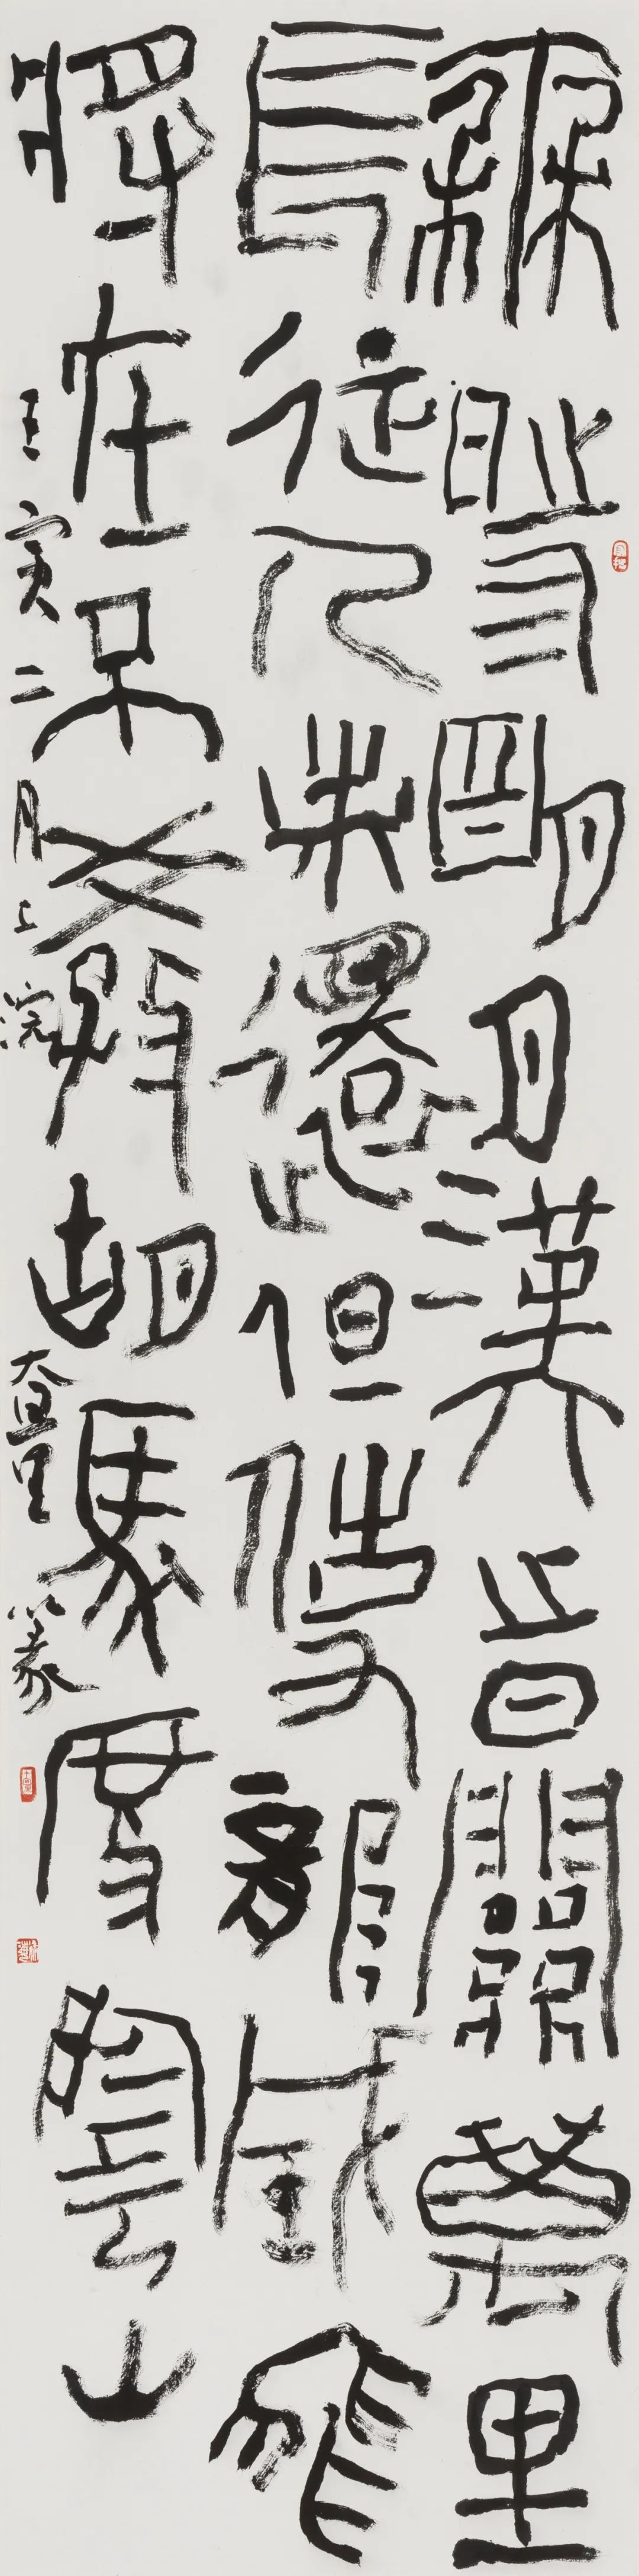 秦時明月漢旹關萬里
長征人未還但使龍城飛
將在不教胡馬度陰山
壬寅二月上浣 里篆